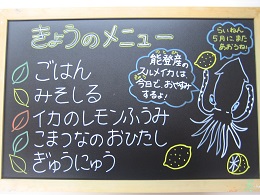 きょうのメニュー
ごはん
みそしる
イカのレモンふうみ
こまつなのおひたし
ぎゅうにゅう
能登産の
スルメイカは、
今日で、おやすみ
するよ!
らいねん
5月にまた
あおうね!